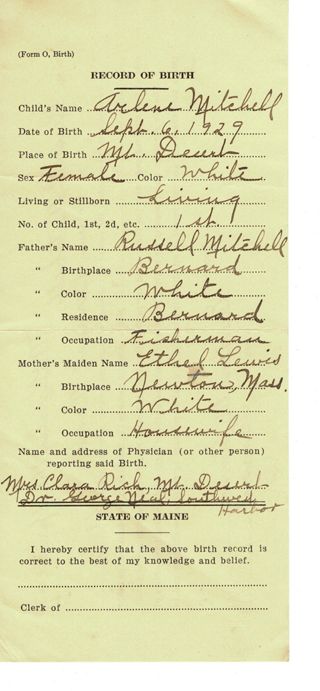 (Form O, Birth)
RECORD OF BIRTH
Child's Name Arlene Mitchell
Date of Birth Sept. 6, 1929
Place of Birth Mt. Desert
Sex Female Color White
Living or Stillborn Living
No. of Child, 1st, 2d, etc. 1st
Father's Name Russell Mitchell
" Birthplace Bernard
" Color White
" Residence Bernard
" Occupation Fisherman
Mother's Maiden Name Ethel Lewis
" Birthplace Newton, Mass.
" Color White
" Occupation Housewife
Name and address of Physician (or other person)
reporting said Birth.
Mrs Clara Rich, Mt. Desert
Dr. George Neal, Southwest
Harbor
STATE OF MAINE
I hereby certify that the above birth record is
correct to the best of my knowledge and belief.
Clerk of